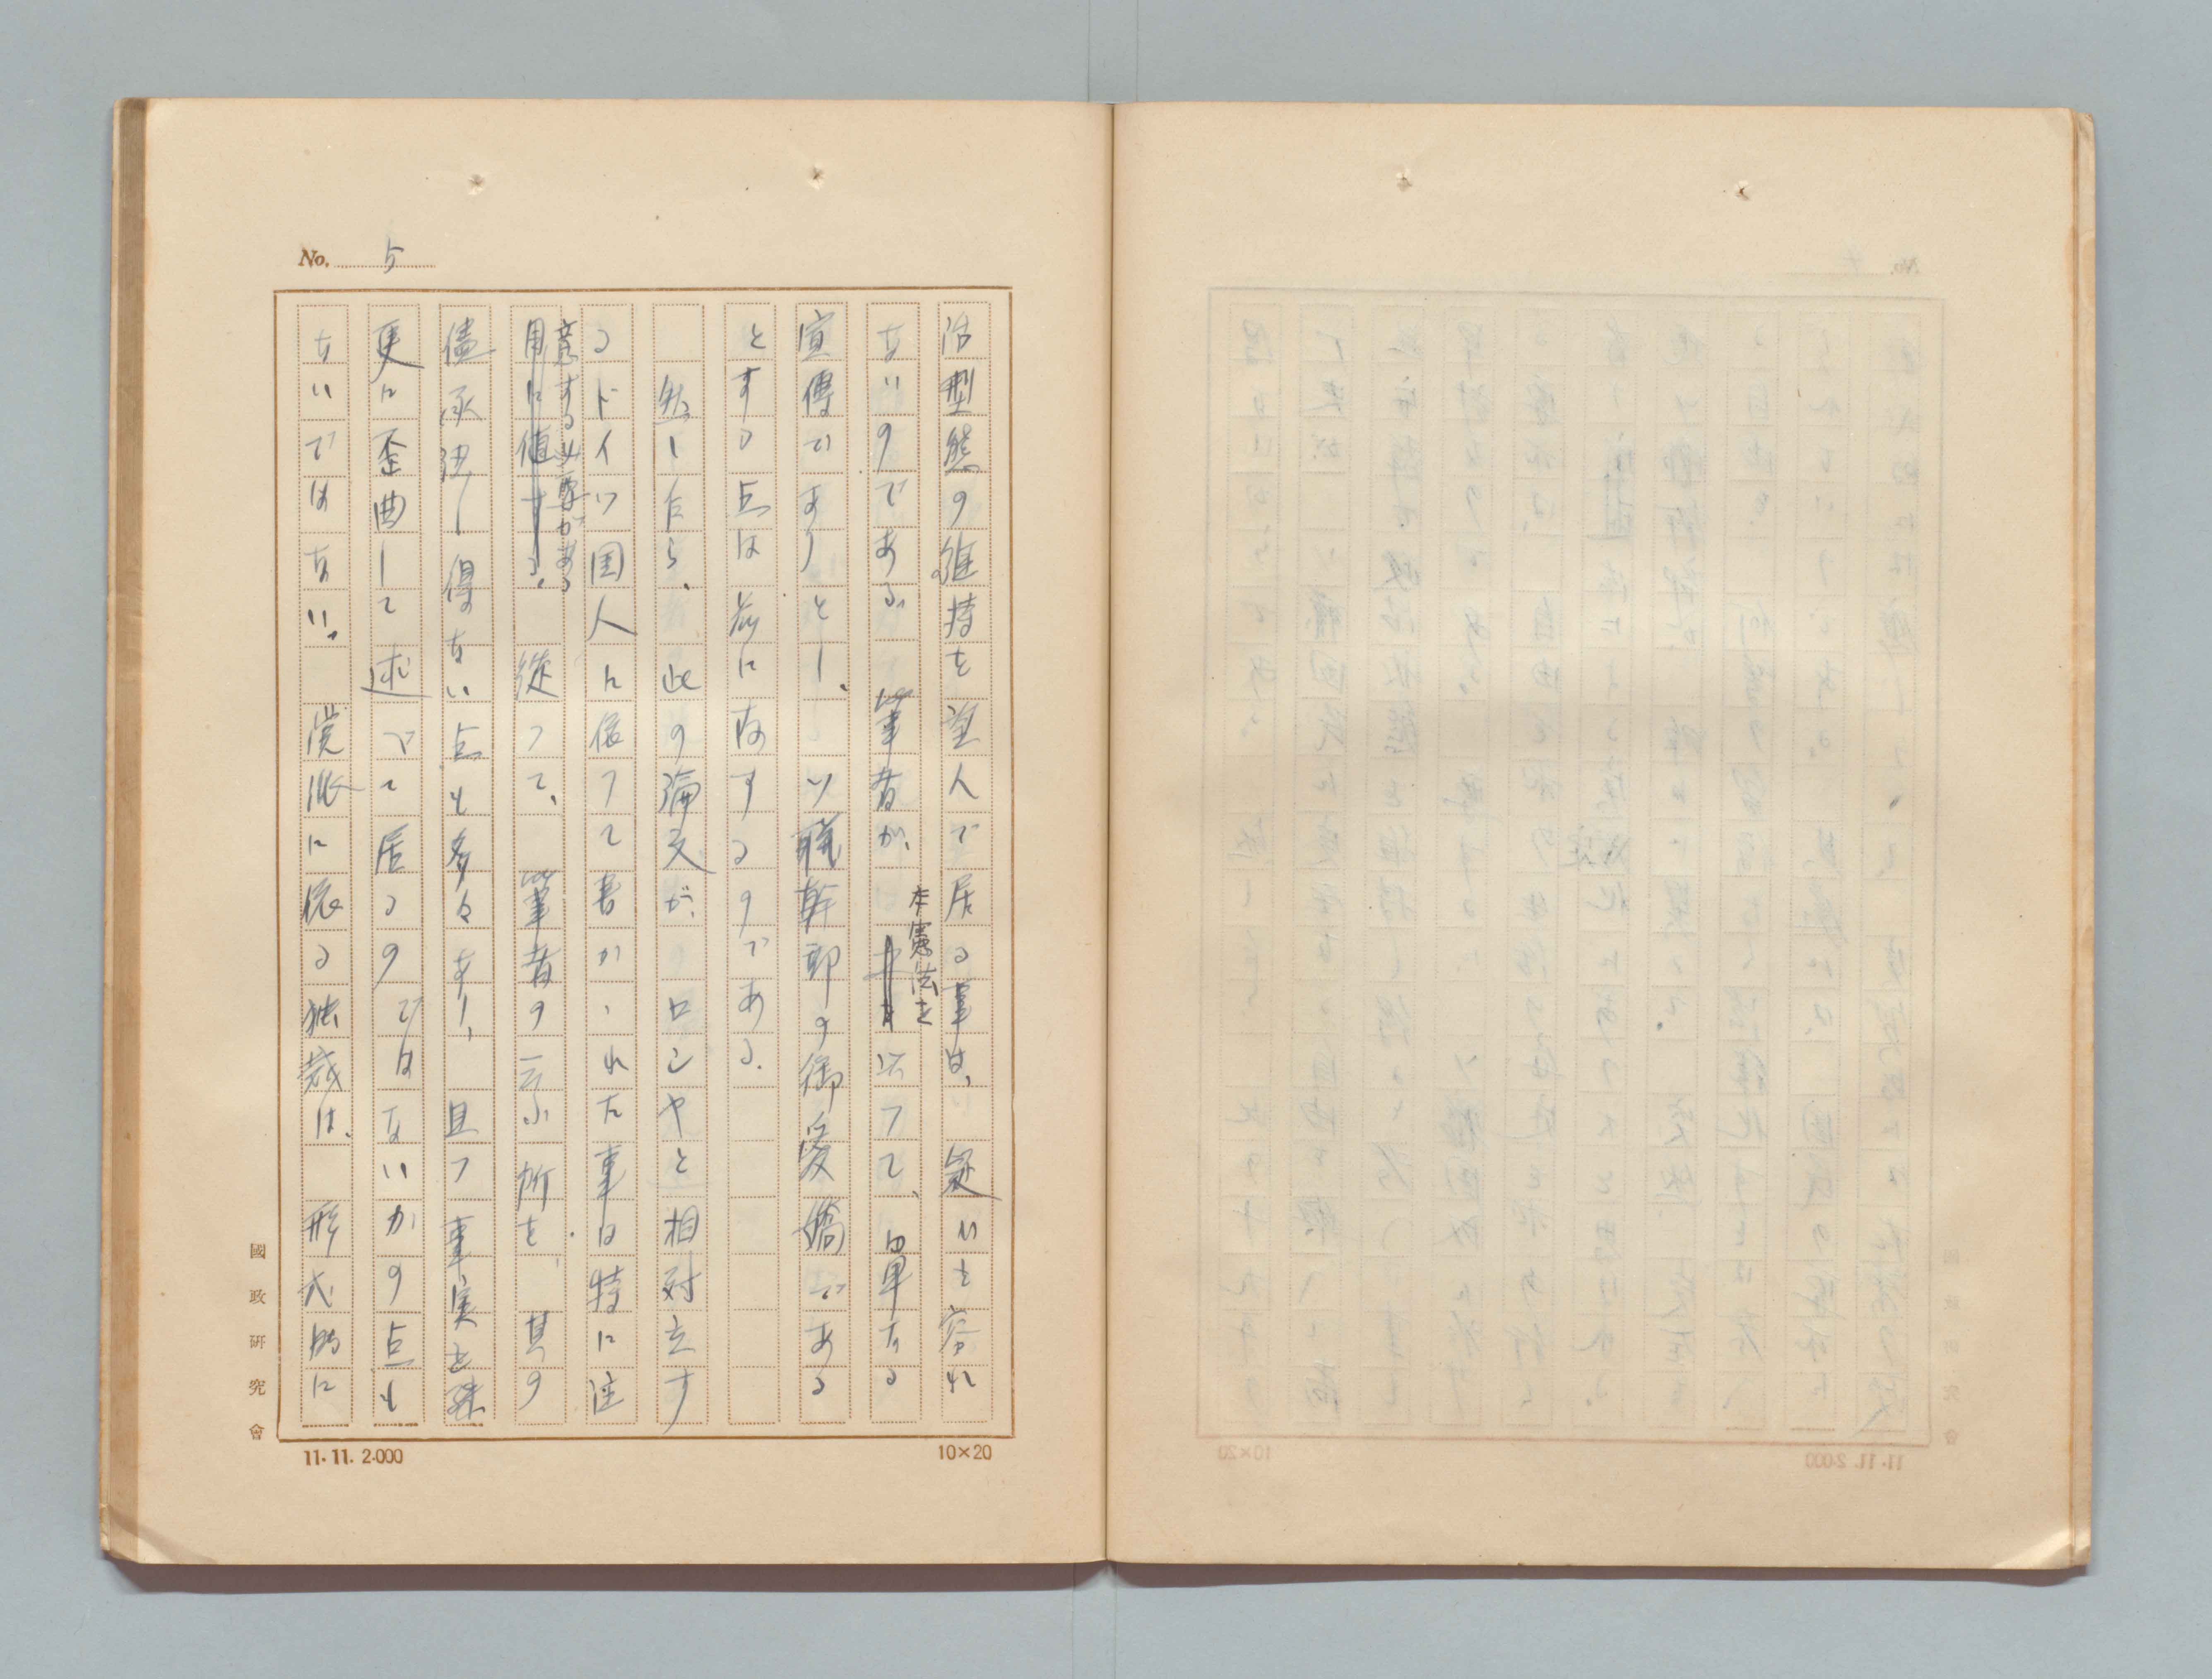 No. 5
活型態の維持を望んで居る事は、疑ひを容れ
ないのである。筆者が、本憲法を以つて、単なる
宣傳であり とし、ソ聯幹部の御愛嬌である
とする点は茲に存するのである。
然したら、此の論文が、ロシヤと相対立す
るドイツ国人に依つて書かゝれた事は特に注
意する必要がある
用に値する。従つて、筆者の云ふ所を、其の
儘承認し得ない点も多々あり、且つ事実を殊
更に歪曲して述べて居るのではないかの点も
ないではない。党派に依る独裁は、形式的に
國政研究會
11. 11. 2.000
10×20